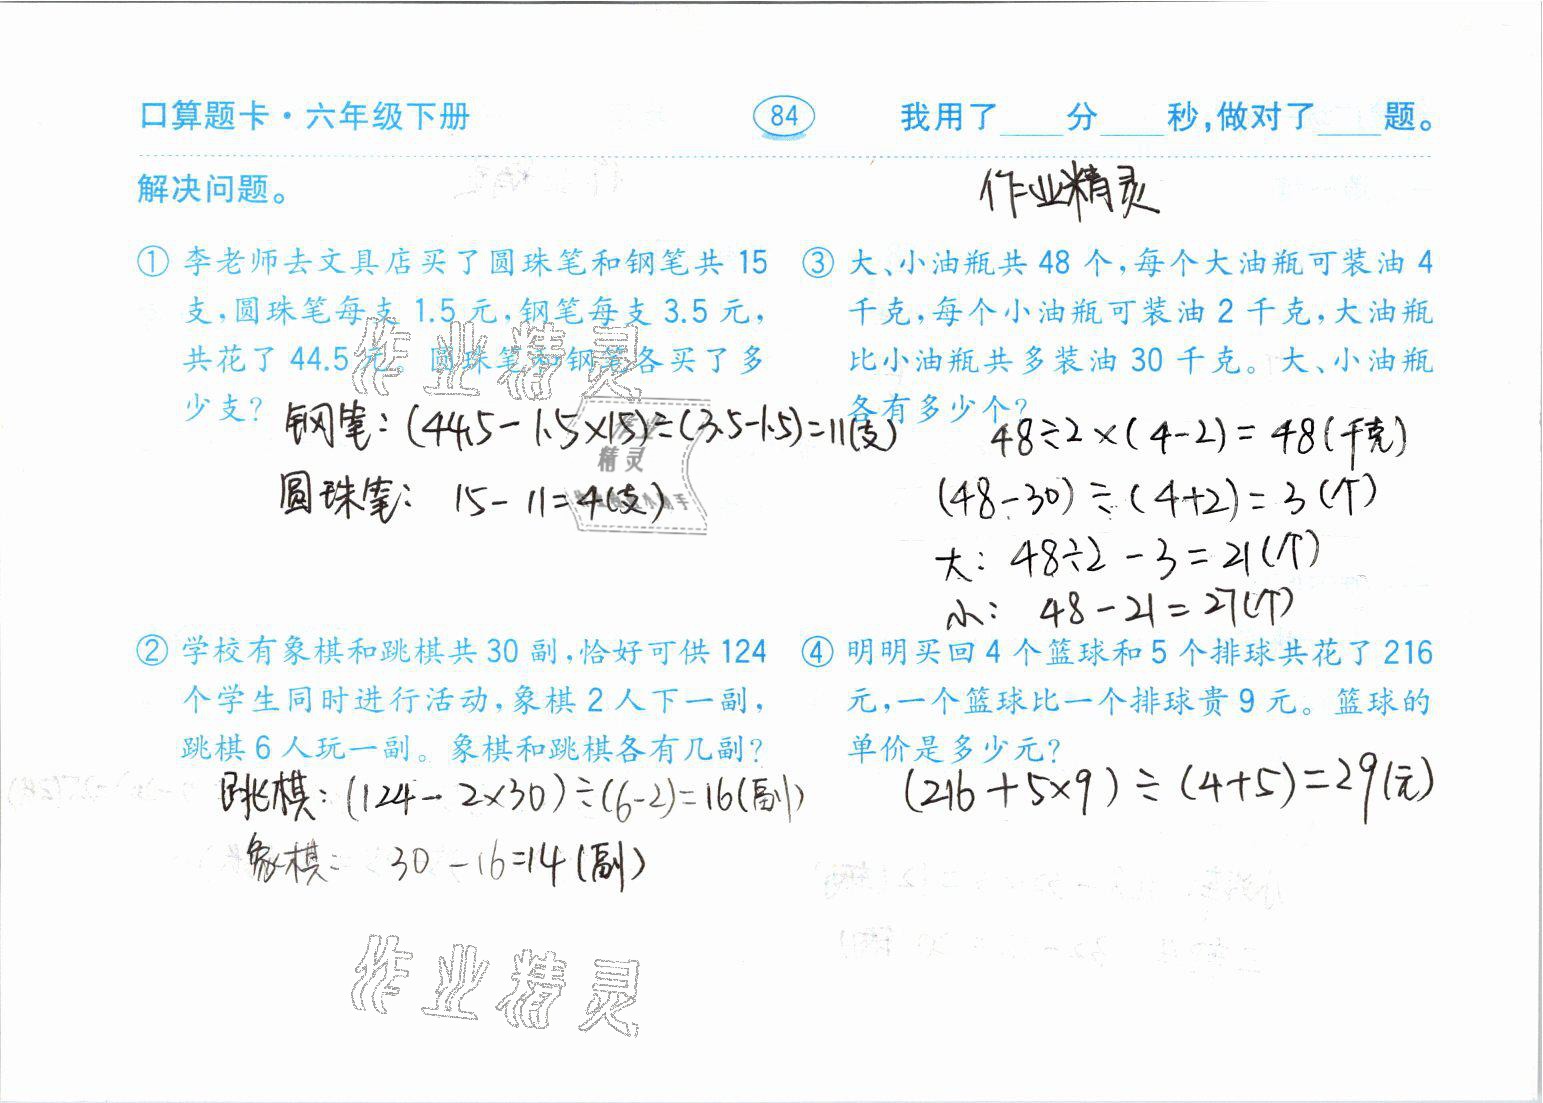 口算题卡·六年级下册
84
我用了____分____秒,做对了____题。
解决问题。
作业精灵
① 李老师去文具店买了圆珠笔和钢笔共 15
支,圆珠笔每支 1.5 元,钢笔每支 3.5 元,
共花了 44.5 元。圆珠笔和钢笔各买了多
少支?
钢笔:(44.5-1.5×15)÷(3.5-1.5)=11(支)
圆珠笔: 15-11=4(支)
② 学校有象棋和跳棋共 30 副,恰好可供 124
个学生同时进行活动,象棋 2 人下一副,
跳棋 6 人玩一副。象棋和跳棋各有几副?
跳棋:(124-2×30)÷(6-2)=16(副)
象棋: 30-16=14(副)
③ 大、小油瓶共 48 个,每个大油瓶可装油 4
千克,每个小油瓶可装油 2 千克,大油瓶
比小油瓶共多装油 30 千克。大、小油瓶
各有多少个?
48÷2×(4-2)=48(千克)
(48-30)÷(4+2)=3(个)
大: 48÷2-3=21(个)
小: 48-21=27(个)
④ 明明买回 4 个篮球和 5 个排球共花了 216
元,一个篮球比一个排球贵 9 元。篮球的
单价是多少元?
(216+5×9)÷(4+5)=29(元)
作业精灵
作业
精灵
作业精灵